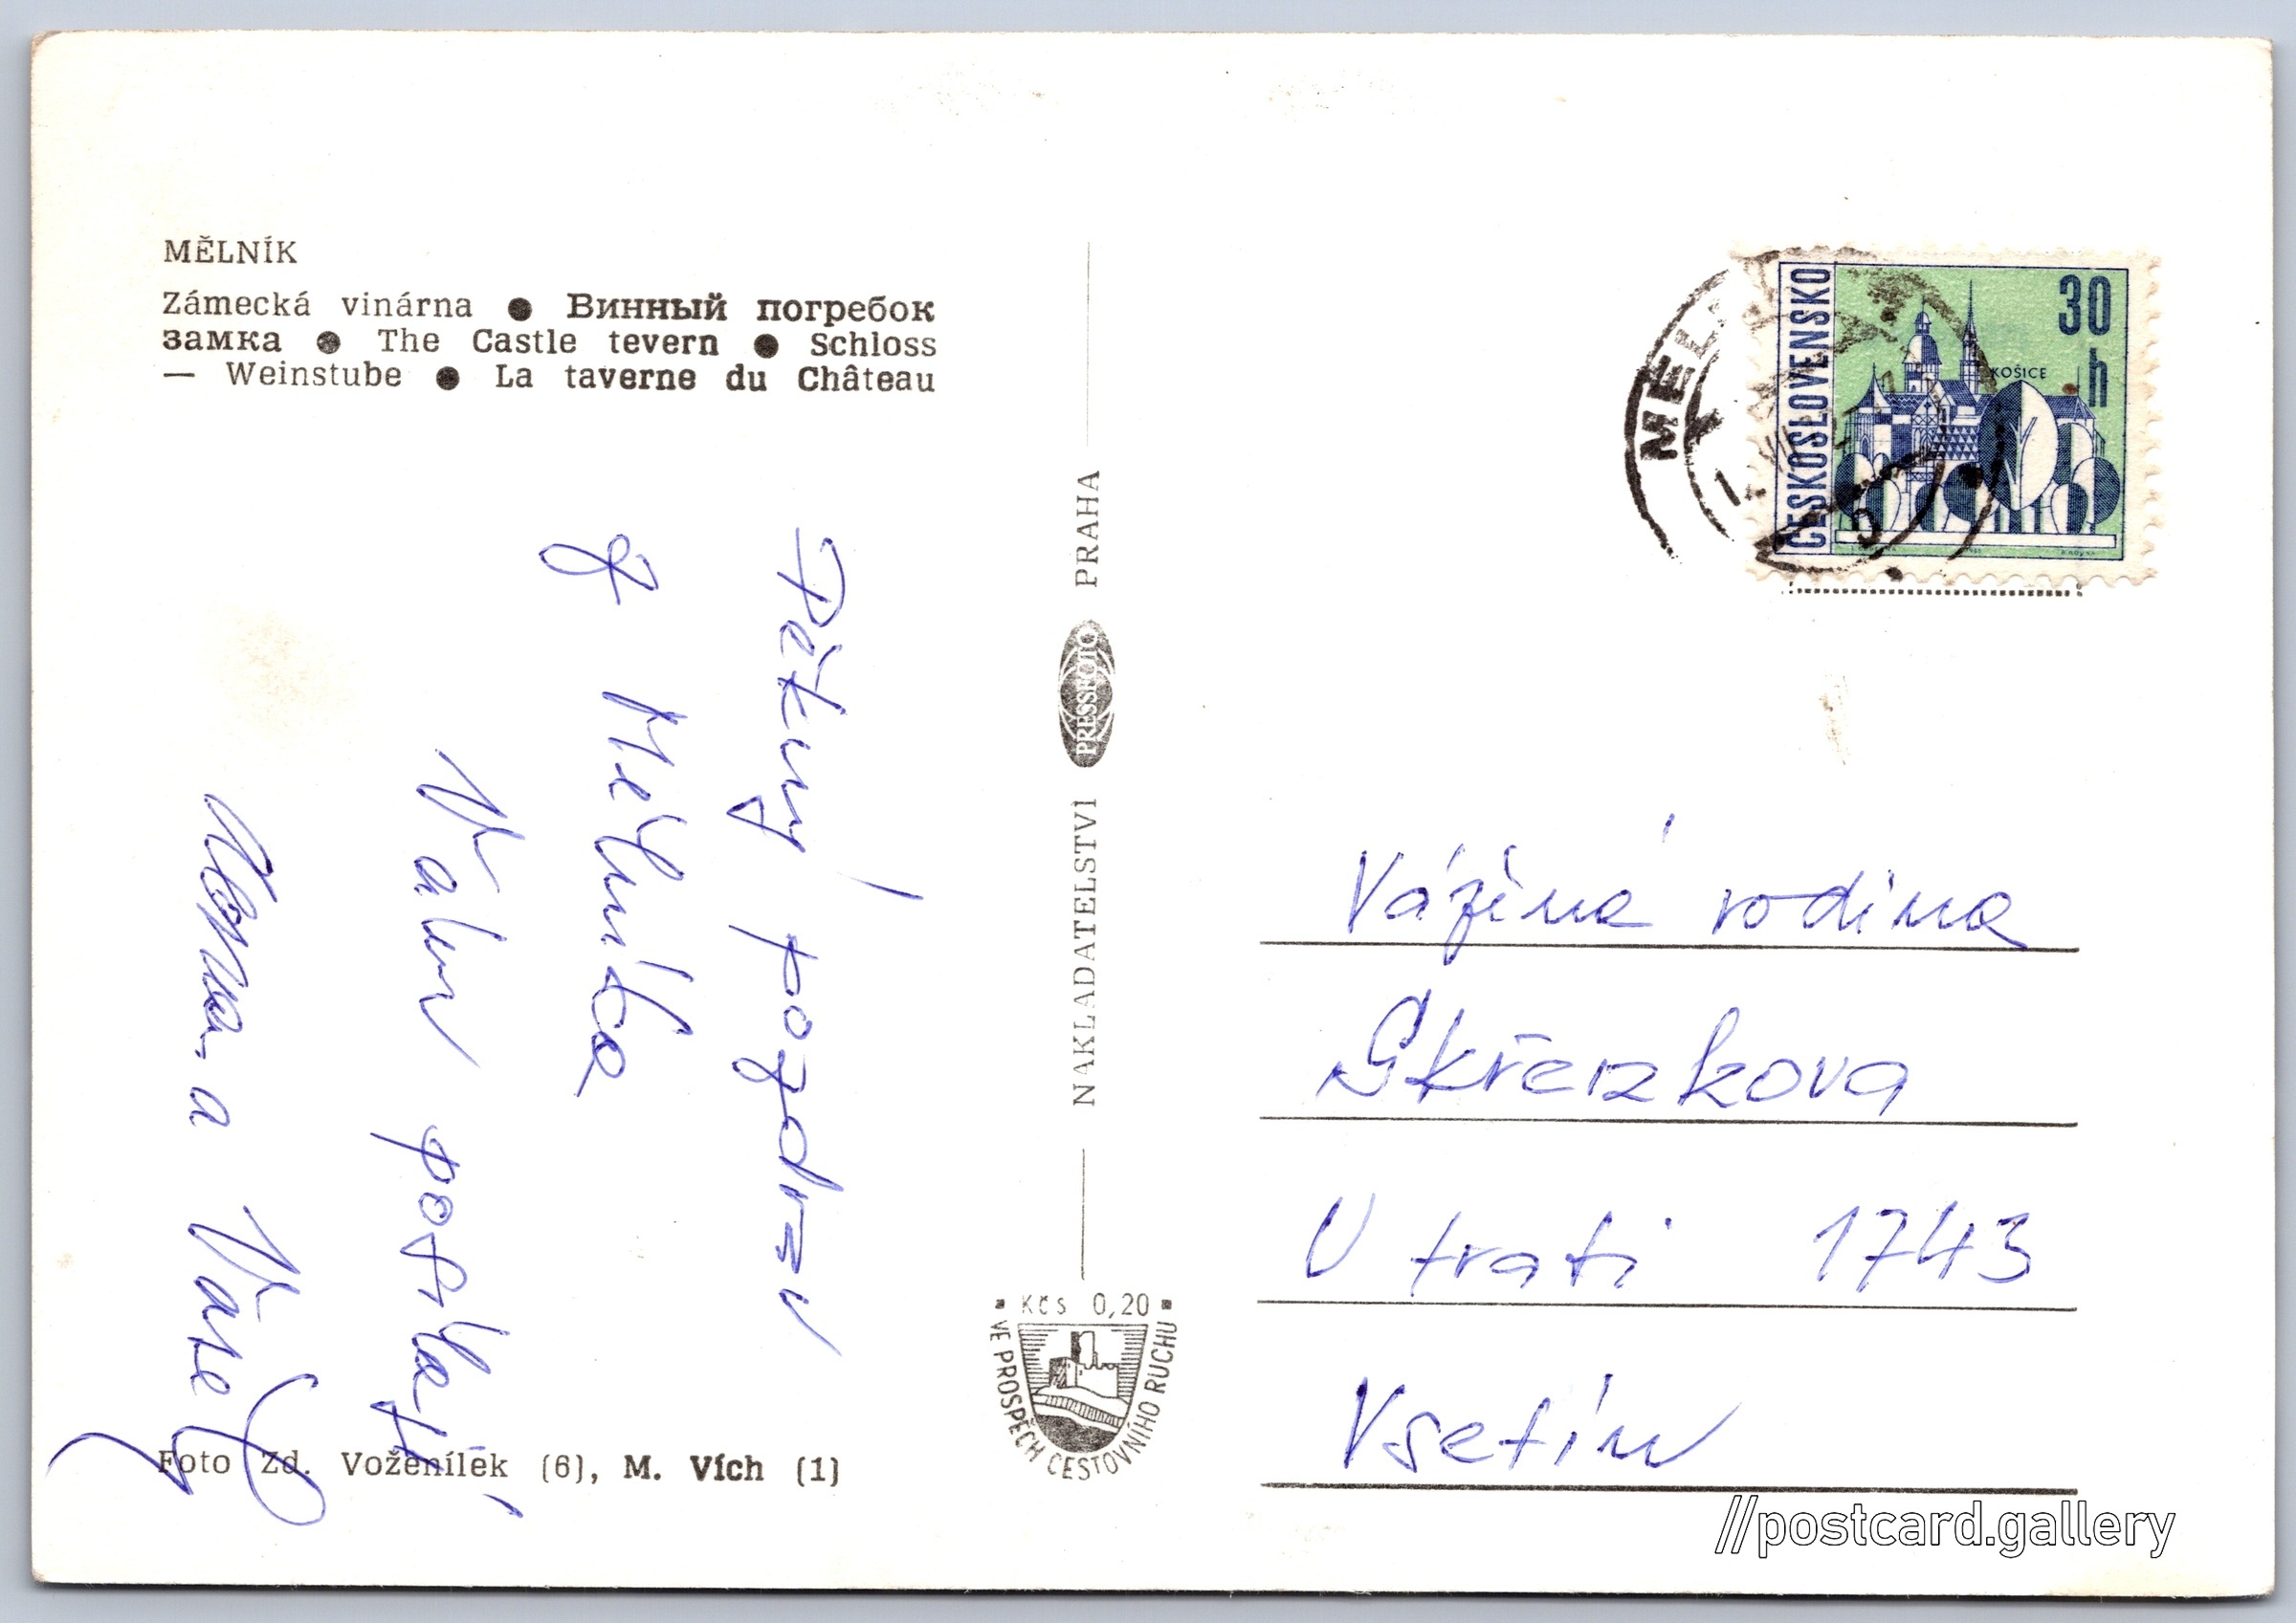 MĚLNÍK
Zámecká vinárna ● Винный погребок
замка ● The Castle tevern ● Schloss
— Weinstube ● La taverne du Château
Pěkný pozdrav
z Mělníka
Vám posílají
a
Foto Zd. Voženílek (6), M. Vích (1)
NAKLADATELSTVÍ PRESSFOTO PRAHA
Kčs 0,20
VE PROSPĚCH CESTOVNÍHO RUCHU
ČESKOSLOVENSKO
30 h
KOŠICE
MĚLNÍK
Vážená rodina
U trati 1743
Vsetín
//postcard.gallery